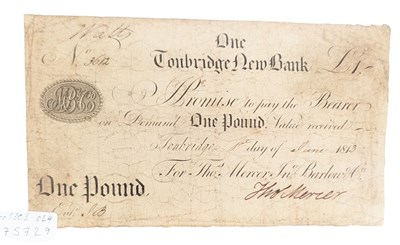 One
Watts
Tonbridge New Bank £1,-
No.
I Promise to pay the Bearer
on Demand One Pound, Value received
Tonbridge day of June 1813
For Thos. Mercer, Jno. Barlow & Co
Thos Mercer
One Pound
75729